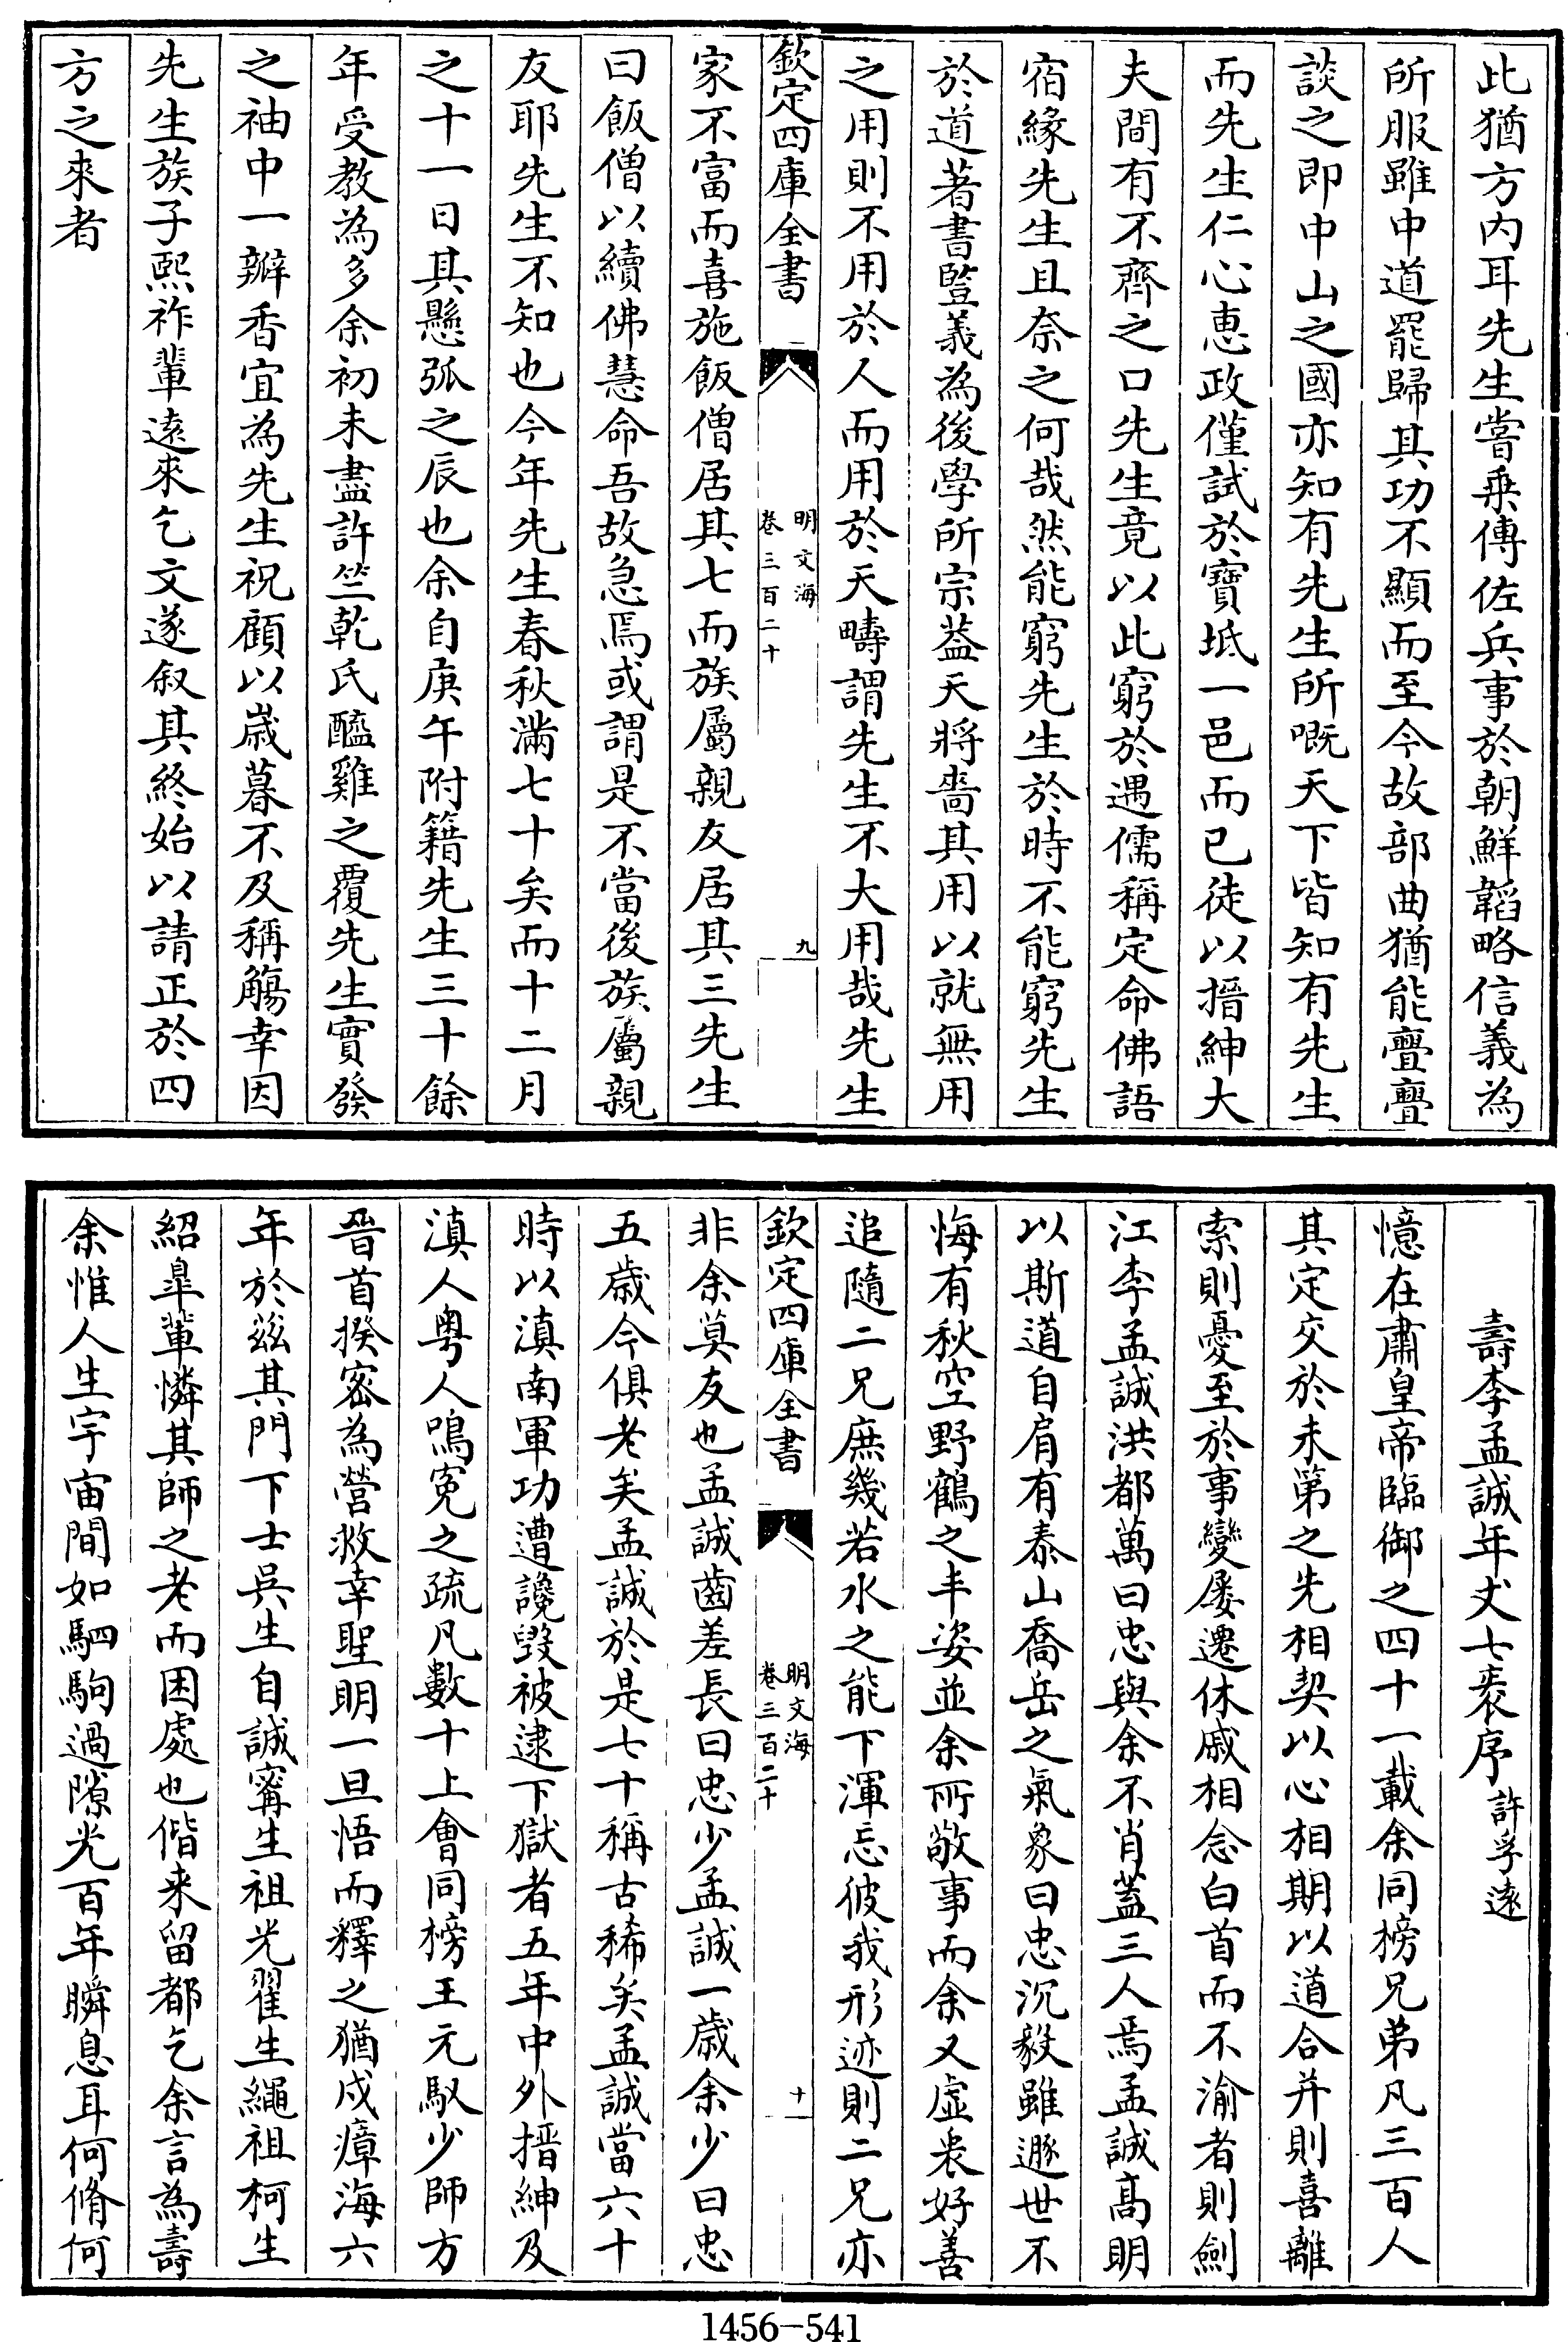 此猶方内耳先生嘗乗傳佐兵事於朝鮮韜略信義為
所服雖中道罷歸其功不顯而至今故部曲猶能亹亹
談之即中山之國亦知有先生所嘅天下皆知有先生
而先生仁心恵政僅試於寶坻一邑而已徒以搢紳大
夫間有不齊之口先生竟以此窮於遇儒稱定命佛語
宿緣先生且奈之何哉然能窮先生於時不能窮先生
於道著書豎義為後學所宗葢天將嗇其用以就無用
之用則不用於人而用於天疇謂先生不大用哉先生
欽定四庫全書
明文海
卷三百二十
九
家不富而喜施飯僧居其七而族屬親友居其三先生
曰飯僧以續佛慧命吾故急焉或謂是不當後族屬親
友耶先生不知也今年先生春秋滿七十矣而十二月
之十一日其懸弧之辰也余自庚午附籍先生三十餘
年受教為多余初未盡許竺乾氏醯雞之覆先生實發
之袖中一瓣香宜為先生祝顧以歲暮不及稱觴幸因
先生族子熙祚輩逺來乞文遂叙其終始以請正於四
方之來者
壽李孟誠年丈七袠序許孚遠
憶在肅皇帝臨御之四十一載余同榜兄弟凡三百人
其定交於未第之先相契以心相期以道合并則喜離
索則憂至於事變屡遷休戚相念白首而不渝者則劍
江李孟誠洪都萬曰忠與余不肖蓋三人焉孟誠髙明
以斯道自肩有泰山喬岳之氣象曰忠沉毅雖遯世不
悔有秋空野鶴之丰姿並余所敬事而余又虚衷好善
追隨二兄庶幾若水之能下渾忘彼我形迹則二兄亦
欽定四庫全書
明文海
卷三百二十
十
非余莫友也孟誠齒差長曰忠少孟誠一歲余少曰忠
五歲今俱老矣孟誠於是七十稱古稀矣孟誠當六十
時以滇南軍功遭讒毀被逮下獄者五年中外搢紳及
滇人粤人鳴寃之疏凡數十上會同榜王元馭少師方
晉首揆宻為營救幸聖明一旦悟而釋之猶戍瘴海六
年於兹其門下士吳生自誠甯生祖光翟生繩祖柯生
紹臯輩憐其師之老而困處也偕来留都乞余言為壽
余惟人生宇宙間如駟駒過隙光百年瞬息耳何脩何
1456—541